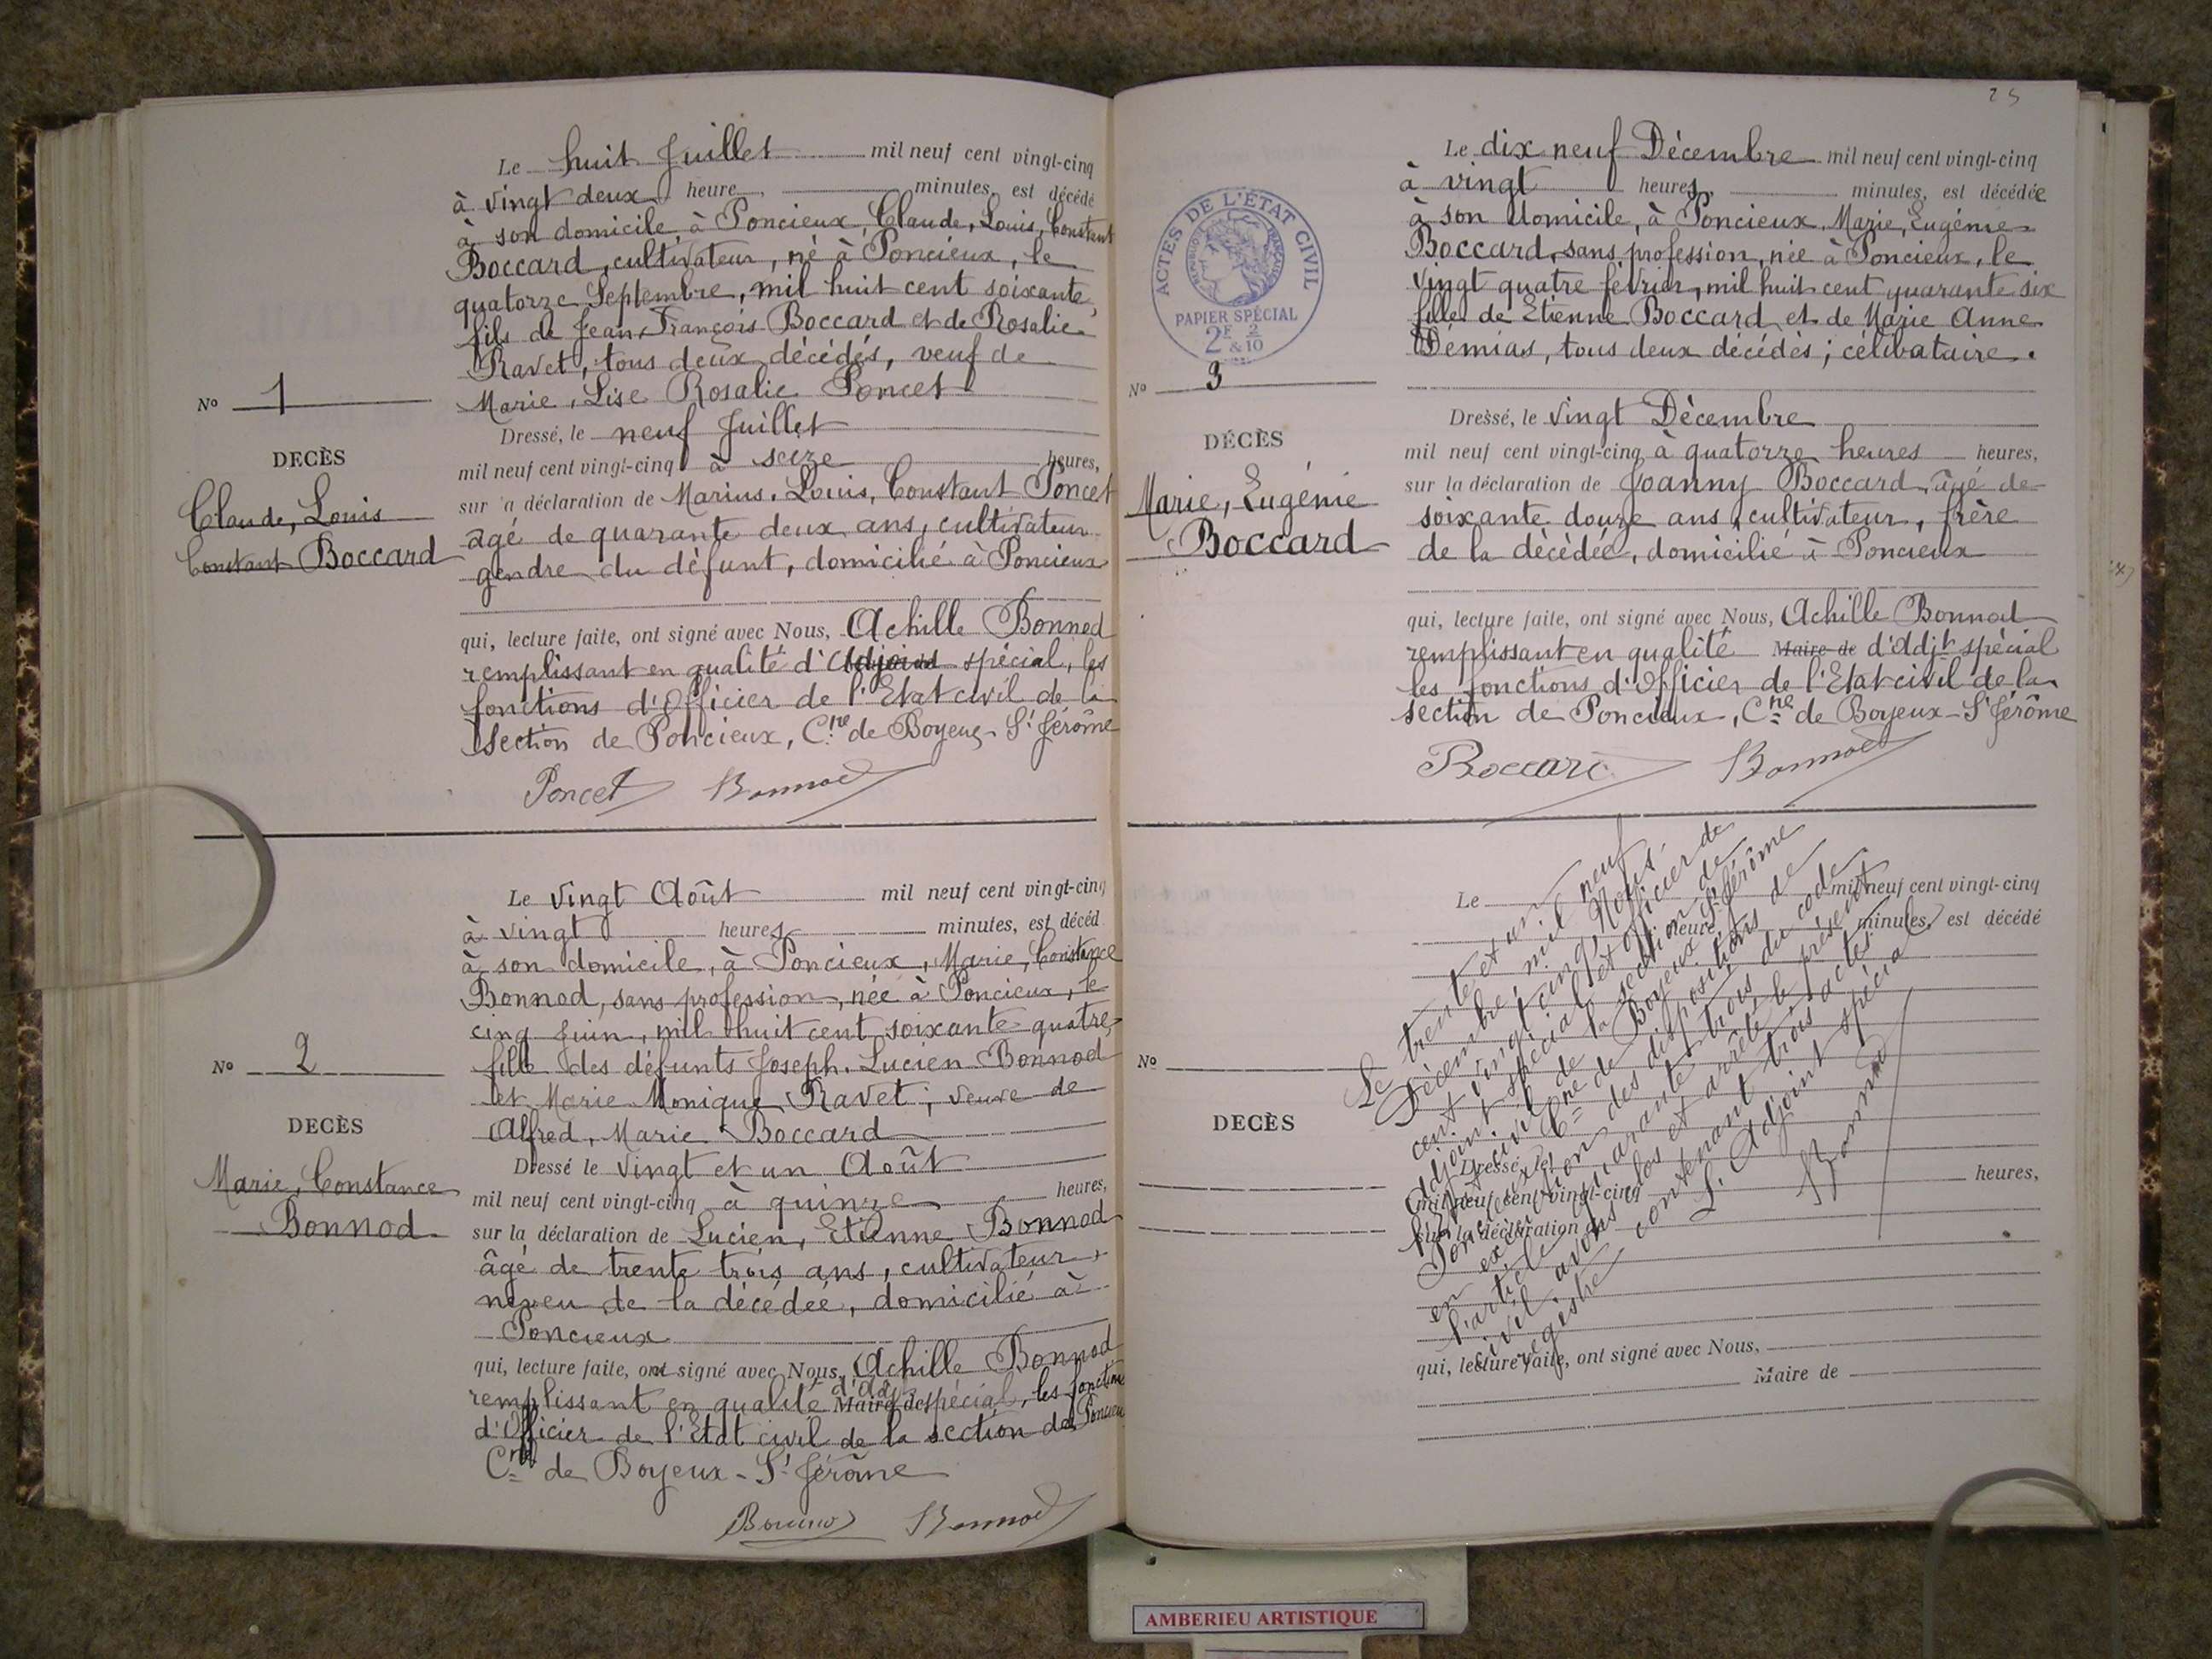 Le huit Juillet mil neuf cent vingt-cinq
à vingt deux heure, minutes, est décédé
à son domicile, à Poncieux, Claude, Louis, Constant
Boccard, cultivateur, né à Poncieux, le
quatorze Septembre, mil huit cent soixante,
fils de Jean, François Boccard et de Rosalie
Ravet, tous deux décédés, veuf de
Marie, Lise Rosalie Poncet
No 1
DECÈS
Claude, Louis
Constant Boccard
Dressé, le neuf Juillet
mil neuf cent vingt-cinq à seize heures,
sur a déclaration de Marius, Louis, Constant Poncet
agé de quarante deux ans, cultivateur
gendre du défunt, domicilié à Poncieux
qui, lecture faite, ont signé avec Nous, Achille Bonnod
remplissant en qualité d'Adjoint spécial, les
fonctions d'Officier de l'Etat civil de la
section de Poncieux, Cne de Boyeux-St Jérôme
Poncet Bonnod
Le vingt Août mil neuf cent vingt-cinq
à vingt heures minutes, est décéd
à son domicile, à Poncieux, Marie, Constance
Bonnod, sans profession, née à Poncieux, le
cinq Juin, mil huit cent soixante quatre,
fille des défunts Joseph, Lucien Bonnod
et Marie Monique Ravet, veuve de
Alfred, Marie Boccard
No 2
DECÈS
Marie, Constance
Bonnod
Dressé le vingt et un Août
mil neuf cent vingt-cinq à quinze heures,
sur la déclaration de Lucien, Etienne Bonnod
âgé de trente trois ans, cultivateur,
neveu de la décédée, domicilié à
Poncieux
qui, lecture faite, ont signé avec Nous, Achille Bonnod
remplissant en qualité d'Adj Maire de spécial, les fonctions
d'Officier de l'Etat civil de la section de Poncieux
Cne de Boyeux-St Jérôme
Bonnod Bonnod
25
ACTES DE L'ÉTAT CIVIL
RÉPUBLIQUE FRANÇAISE
PAPIER SPÉCIAL
2F & 2/10
Le dix neuf Décembre mil neuf cent vingt-cinq
à vingt heures, minutes, est décédée
à son domicile, à Poncieux, Marie, Eugénie
Boccard, sans profession, née à Poncieux, le
vingt quatre février, mil huit cent quarante six
fille de Etienne Boccard et de Marie Anne
Démias, tous deux décédés; célibataire.
No 3
DÉCÈS
Marie, Eugénie
Boccard
Dressé, le vingt Décembre
mil neuf cent vingt-cinq à quatorze heures heures,
sur la déclaration de Joanny Boccard, âgé de
soixante douze ans, cultivateur, frère
de la décédée, domicilié à Poncieux
qui, lecture faite, ont signé avec Nous, Achille Bonnod
remplissant en qualité Maire de d'Adjt spécial
les fonctions d'Officier de l'Etat civil de la
section de Poncieux, Cne de Boyeux-St Jérôme
Boccard Bonnod
Le mil neuf cent vingt-cinq
heure, minutes, est décédé
No
DECÈS
Dressé, le
mil neuf cent vingt-cinq heures,
sur la déclaration de
qui, lecture faite, ont signé avec Nous,
Maire de
Le trente et un
Décembre, mil neuf
cent vingt cinq, Nous,
Adjoint spécial et officier de
l'Etat civil de la section de
Poncieux Cne de Boyeux St Jérôme
en exécution des dispositions de
l'article quarante trois du code
civil, avons clos et arrêté le présent
registre contenant trois actes.
L'Adjoint spécial
Bonnod
AMBERIEU ARTISTIQUE